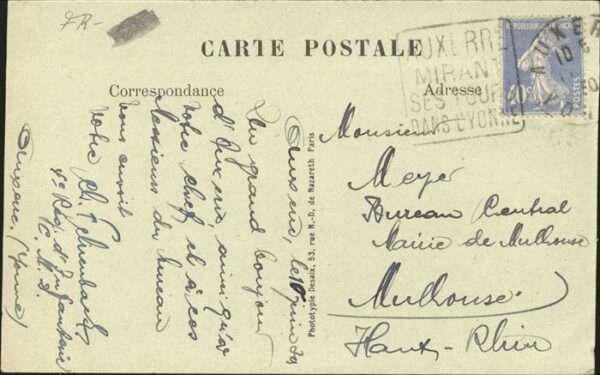 FR-
CARTE POSTALE
Correspondance
Adresse
AUXERRE
MIRANT
SES TOURS
DANS L'YONNE
AUXERRE
POSTES
Auxerre, le 10 juin 29
Un grand bonjour
d'Auxerre, ainsi qu'à
votre chef et à ces
Messieurs du bureau
vous envoit
Votre Ch.
4e Rég. d'Infanterie
Auxerre (Yonne)
Phototypie Desaix, 53, rue N.-D. de Nazareth Paris
Monsieur
Meyer
Bureau Central
Mairie de Mulhouse
Mulhouse
Haut-Rhin